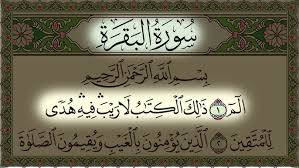 سُورَةُ الْبَقَرَةِ
بِسْمِ اللَّهِ الرَّحْمَٰنِ الرَّحِيمِ
الٓمٓ ١ ذَٰلِكَ الْكِتَٰبُ لَا رَيْبَ فِيهِ هُدًى
لِلْمُتَّقِينَ ٢ الَّذِينَ يُؤْمِنُونَ بِالْغَيْبِ وَيُقِيمُونَ الصَّلَوٰةَ